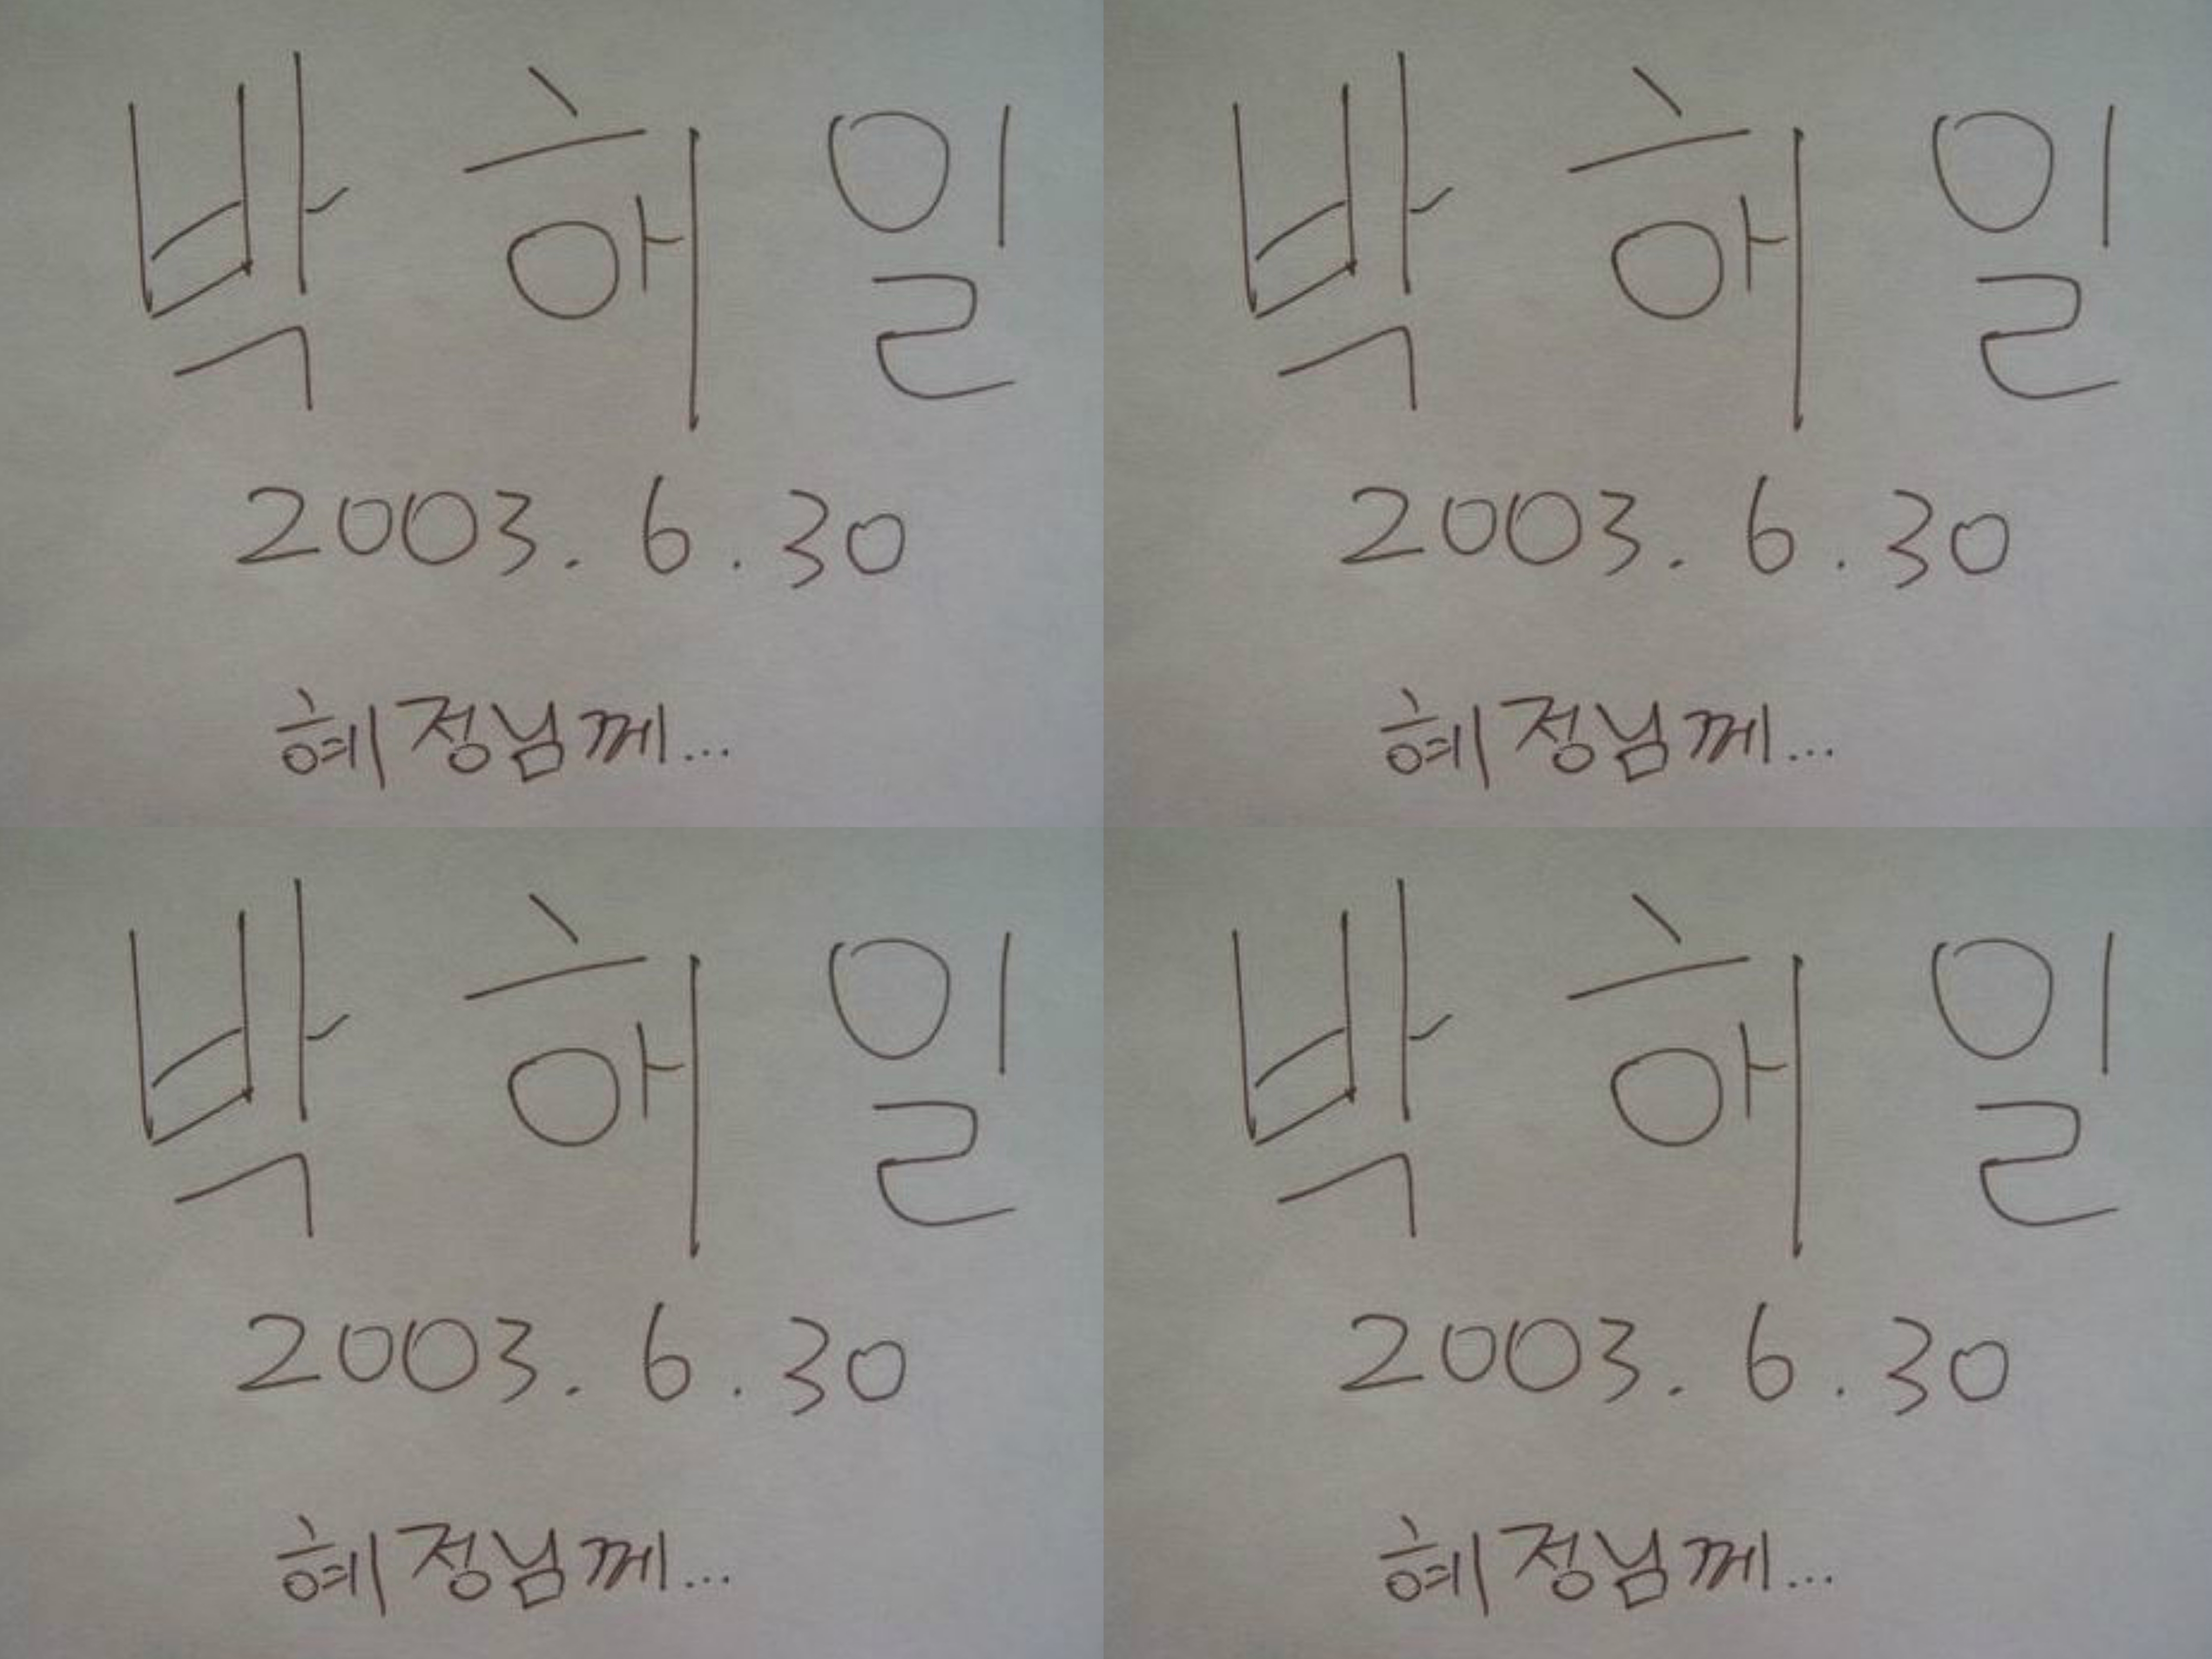 박해일 박해일
2003. 6. 30 2003. 6. 30
혜정님께... 혜정님께...
박해일 박해일
2003. 6. 30 2003. 6. 30
혜정님께... 혜정님께...